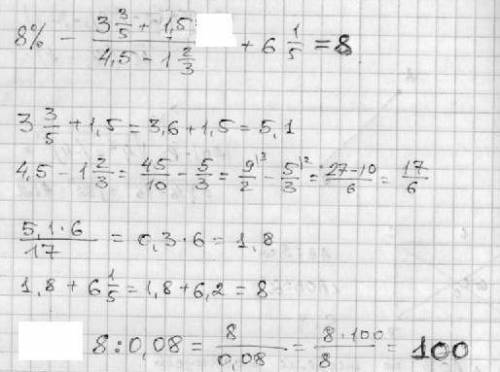 8% - (3 3/5 + 1,5)/(4,5 - 1 2/3) + 6 1/5 = 8
3 3/5 + 1,5 = 3,6 + 1,5 = 5,1
4,5 - 1 2/3 = 45/10 - 5/3 = 9/2 |3 - 5/3 |2 = (27-10)/6 = 17/6
5,1·6/17 = 0,3·6 = 1,8
1,8 + 6 1/5 = 1,8 + 6,2 = 8
8:0,08 = 8/0,08 = 8·100/8 = 100